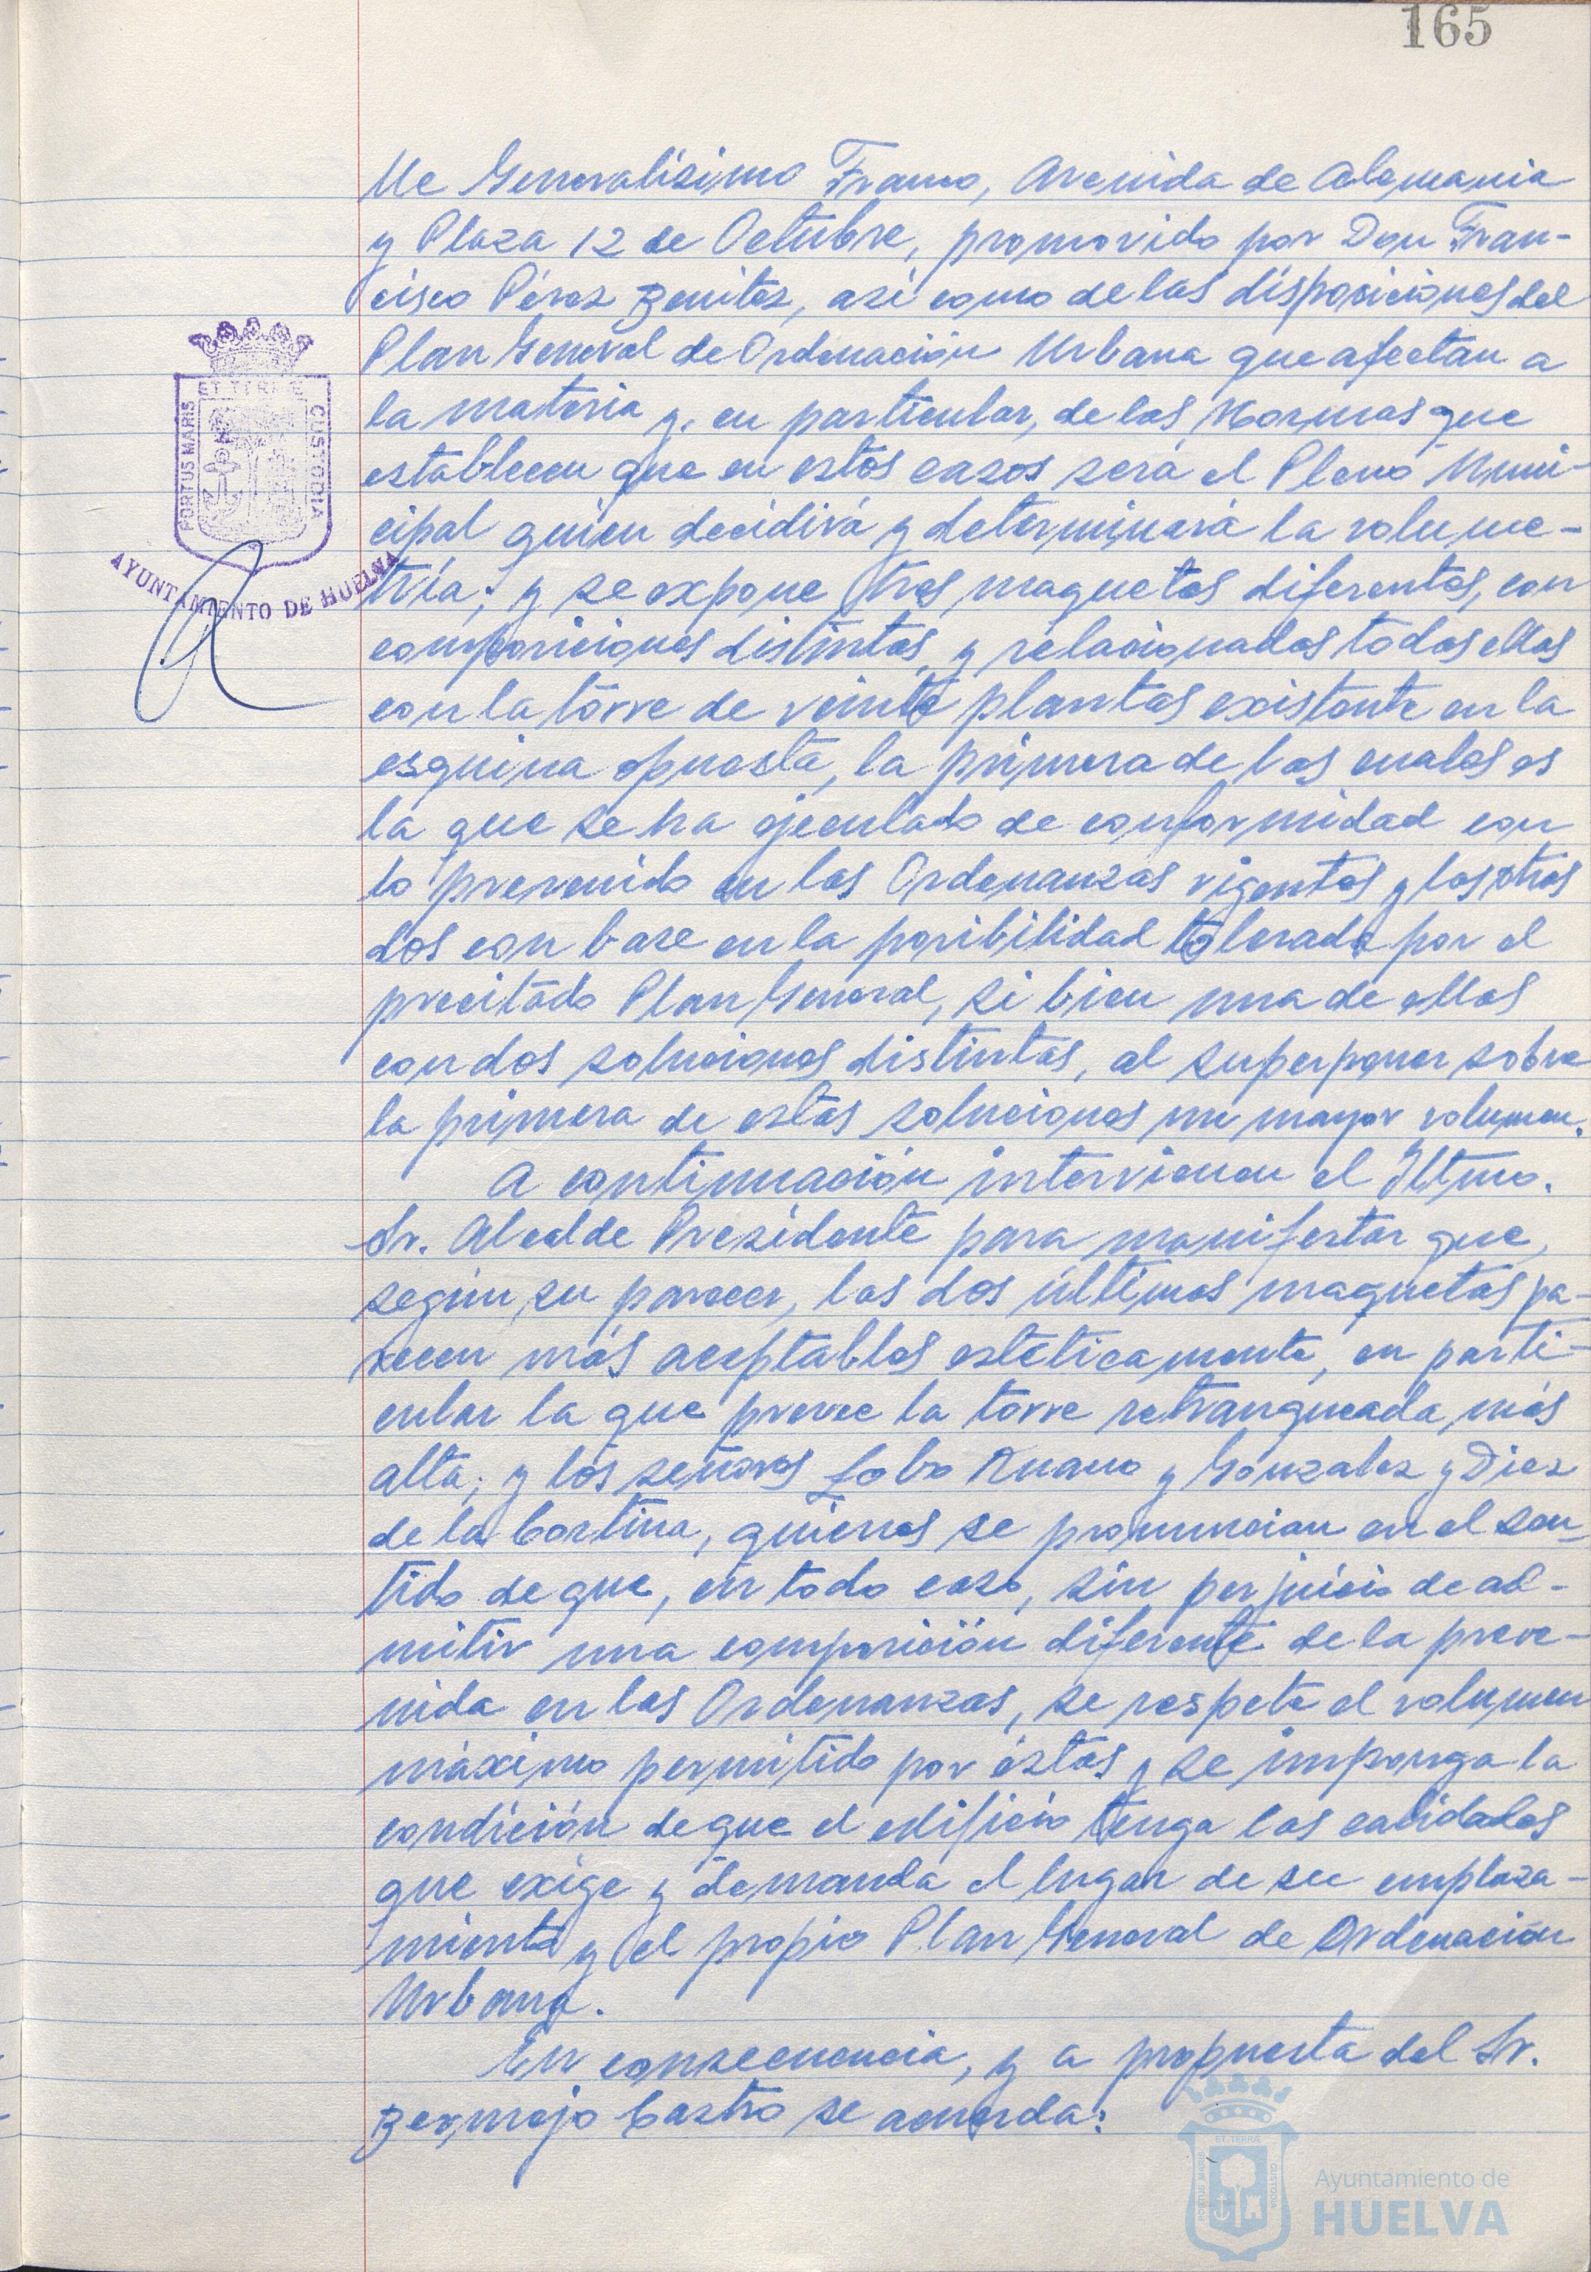 165
lle Generalísimo Franco, Avenida de Alemania
y Plaza 12 de Octubre, promovido por Don Fran-
cisco Pérez Benitez, así como de las disposiciones del
Plan General de Ordenación Urbana que afectan a
la materia y, en particular, de las Normas que
establecen que en estos casos será el Pleno Muni-
cipal quien decidirá y determinará la volume-
tría; y se expone tres maquetas diferentes, con
composiciones distintas y relacionadas todas ellas
con la torre de veinte plantas existente en la
esquina opuesta, la primera de las cuales es
la que se ha ejecutado de conformidad con
lo prevenido en las Ordenanzas vigentes y las otras
dos con base en la posibilidad tolerada por el
precitado Plan General, si bien una de ellas
con dos soluciones distintas, al superponer sobre
la primera de estas soluciones un mayor volumen.
A continuación intervienen el Iltmo.
Sr. Alcalde Presidente para manifestar que,
según su parecer, las dos últimas maquetas pa-
recen más aceptables estéticamente, en parti-
cular la que prevee la torre retranqueada más
alta; y los señores Lobo Ruano y González y Diez
de la Cortina, quienes se pronuncian en el sen-
tido de que, en todo caso, sin perjuicio de ad-
mitir una composición diferente de la preve-
nida en las Ordenanzas, se respete el volumen
máximo permitido por éstas y se imponga la
condición de que el edificio tenga las calidades
que exige y demanda el lugar de su emplaza-
miento y el propio Plan General de Ordenación
Urbana.
En consecuencia, y a propuesta del Sr.
Bermejo Castro se acuerda:
PORTUS MARIS ET TERRAE CUSTODIA
AYUNTAMIENTO DE HUELVA
PORTUS MARIS ET TERRAE CUSTODIA
Ayuntamiento de
HUELVA